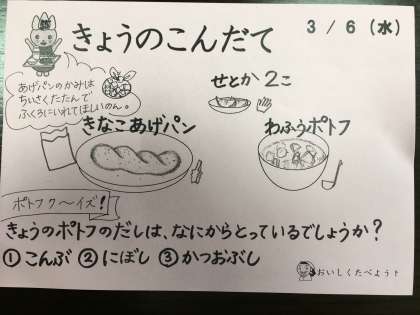 きょうのこんだて
3 / 6 (水)
あげパンのかみは
ちいさくたたんで
ふくろにいれてほしいのん。
せとか 2こ
きなこあげパン
わふうポトフ
ポトフク〜イズ!
きょうのポトフのだしは、なにからとっているでしょうか?
①こんぶ ②にぼし ③かつおぶし
おいしくたべよう!